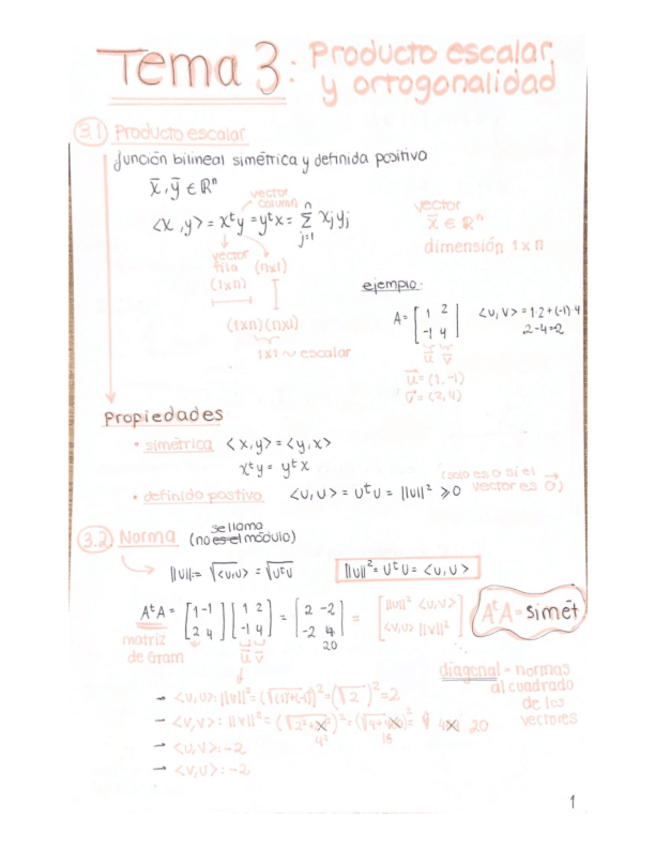 Tema 3: Producto escalar
y ortogonalidad
3.1) Producto escalar
función bilineal simétrica y definida positiva
x̄, ȳ ∈ ℝⁿ
vector
column
<x,y> = xᵗy = yᵗx = Σ xⱼyⱼ
n
j=1
vector
fila (nx1)
(1xn)
(1xn)(nx1)
1x1 ~ escalar
vector
x̄ ∈ ℝⁿ
dimensión 1 x n
ejemplo:
A = [1 2
-1 4]
<u,v> = 1·2+(-1)·4
2-4=-2
ū v̄
u⃗ = (1,-1)
v⃗ = (2,4)
Propiedades
• simétrica <x,y> = <y,x>
xᵗy = yᵗx
• definido postivo <u,u> = uᵗu = ||u||² ⩾ 0
(solo es 0 si el
vector es 0⃗)
3.2) Norma (no es el módulo)
se llama
||u|| = √<u,u> = √uᵗu
||u||² = uᵗu = <u,u>
AᵗA = [1 -1
2 4] [1 2
-1 4] = [2 -2
-2 4
20] = [||u||² <u,v>
<u,v> ||v||²]
AᵗA = simét
matriz
de Gram
ū v̄
diagonal = normas
al cuadrado
de los
vectores
→ <u,u>: ||u||² = (√(1)²+(-1)²)² = (√2)² = 2
→ <v,v>: ||v||² = 20
→ <u,v>: -2
→ <v,u>: -2
1